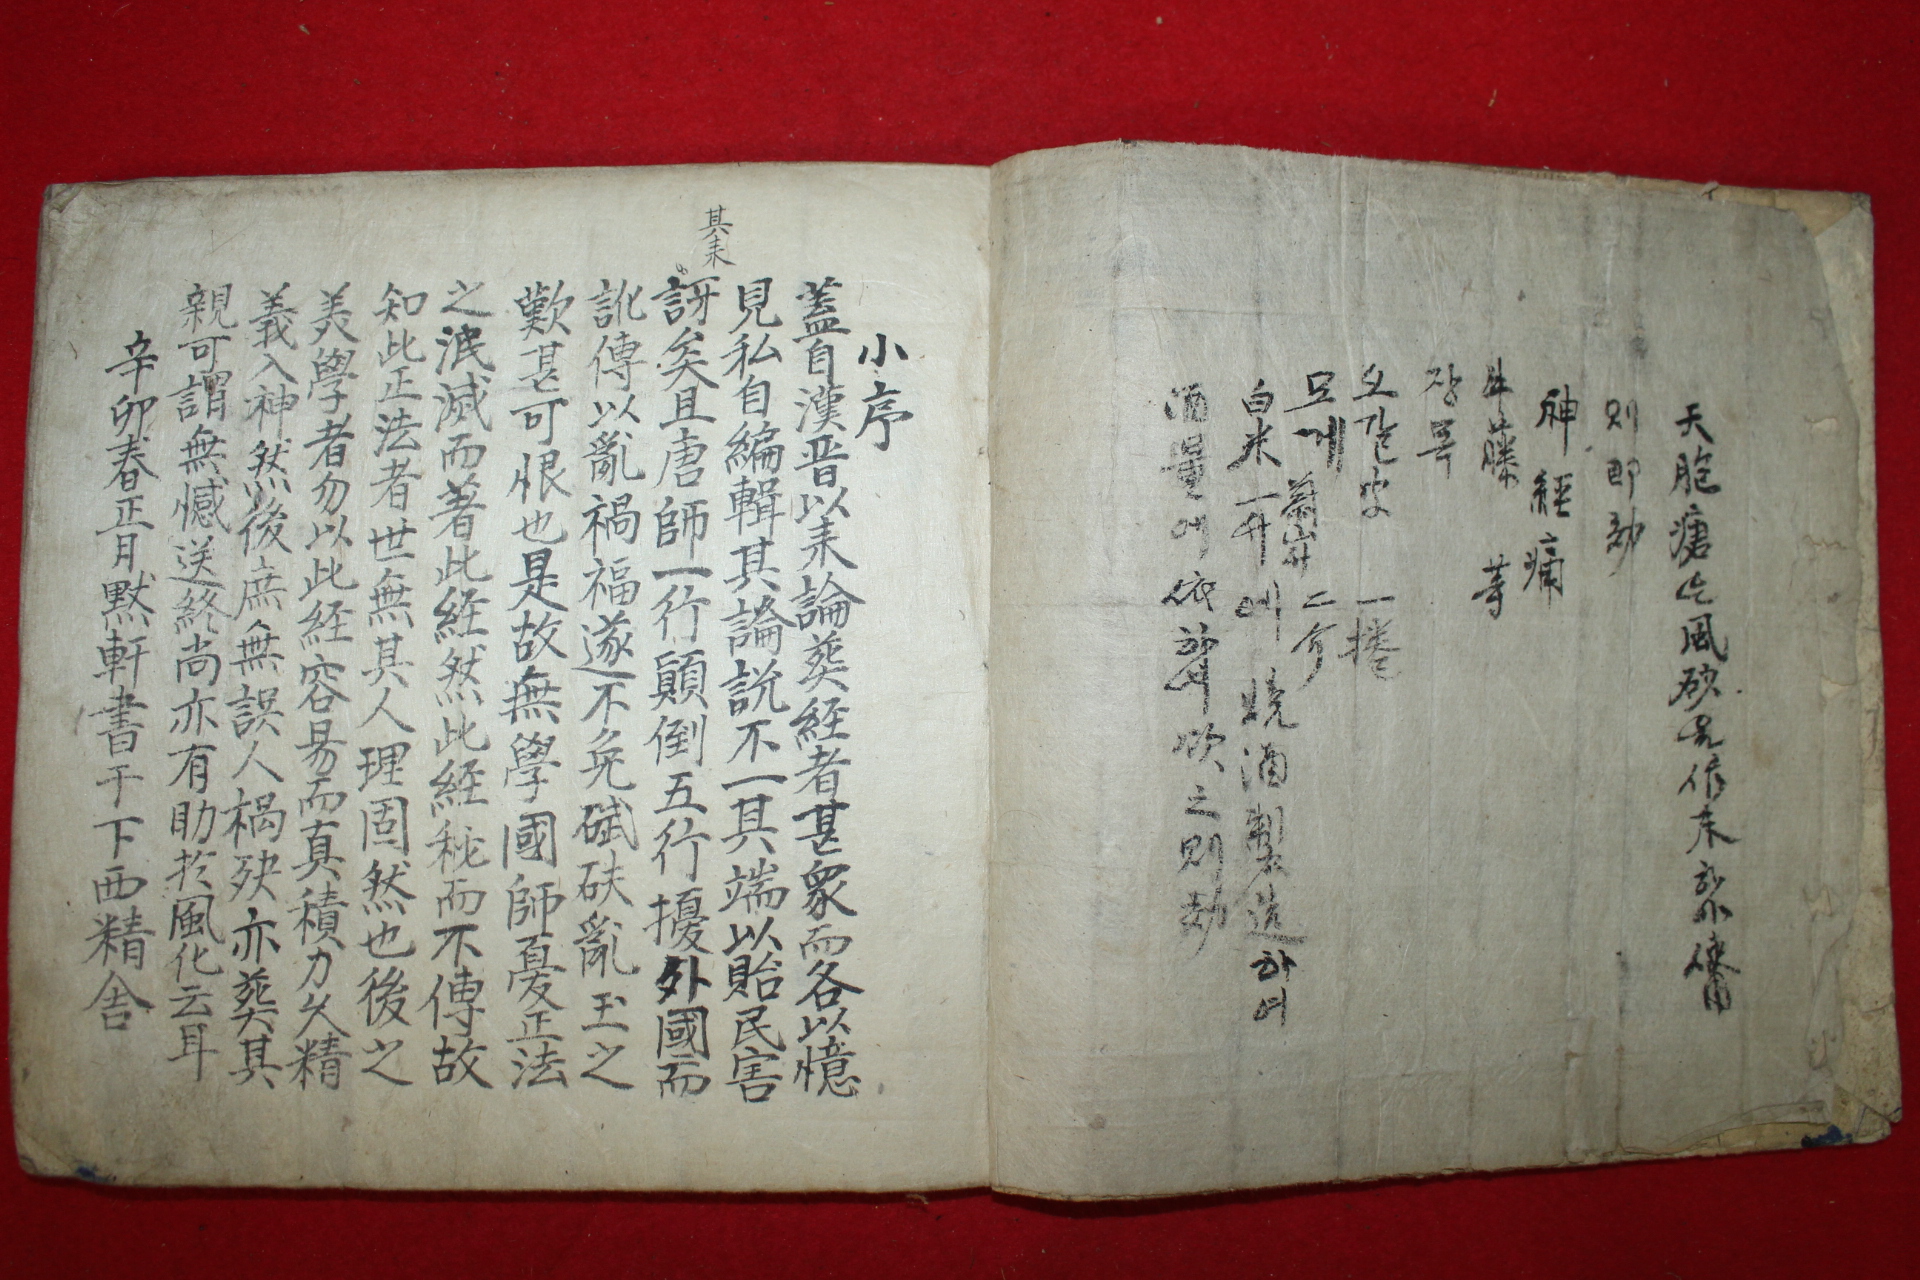 天胞瘡 風砒 作末
則即効
神經痛
牛藤 等
장목
오갈皮 一捲
모게 二介
白米一升에 燒酒製造하여
酒量에依 飮之則効
小序
蓋自漢晋以来論葬経者甚衆而各以憶
見私自編輯其論説不一其端以貽民害
其来
訝矣且唐師一行顚倒五行擾外國而
訛傳以亂禍福遂不免碔砆亂玉之
歎甚可恨也是故無學國師憂正法
之泯滅而著此経然此経秘而不傳故
知此正法者世無其人理固然也後之
羙學者勿以此経容易而真積力久精
義入神然後庶無誤人禍殃亦葬其
親可謂無憾送終尚亦有助扵風化云耳
辛卯春正月默軒書于下西精舎